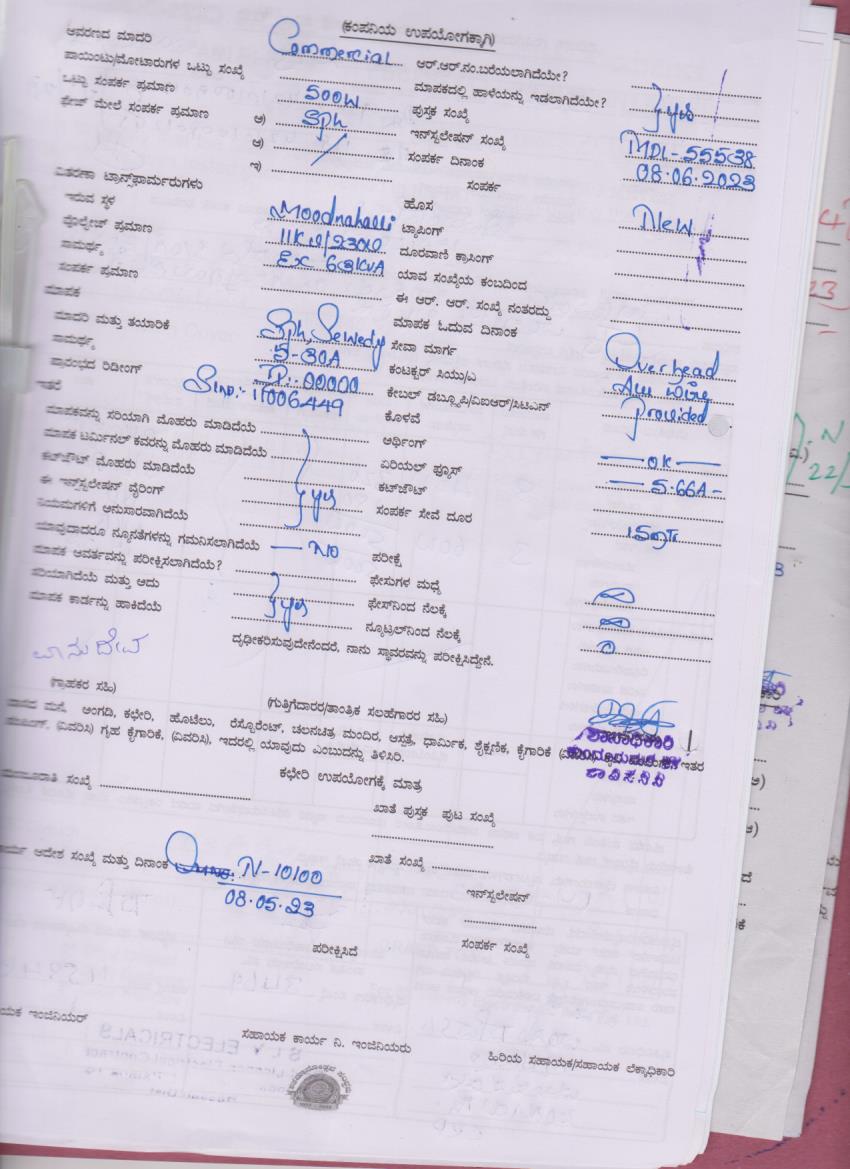 (ಕಂಪನಿಯ ಉಪಯೋಗಕ್ಕಾಗಿ)
ಆವರಣದ ಮಾದರಿ Commercial ಆರ್.ಆರ್.ನಂ.ಬರೆಯಲಾಗಿದೆಯೇ?
ಪಾಯಿಂಟು/ಮೋಟಾರುಗಳ ಒಟ್ಟು ಸಂಖ್ಯೆ ಮಾಪಕದಲ್ಲಿ ಹಾಳೆಯನ್ನು ಇಡಲಾಗಿದೆಯೇ? yes
ಒಟ್ಟು ಸಂಪರ್ಕ ಪ್ರಮಾಣ 500W ಪುಸ್ತಕ ಸಂಖ್ಯೆ
ಫೇಜ್ ಮೇಲೆ ಸಂಪರ್ಕ ಪ್ರಮಾಣ ಅ) Sph ಇನ್‌ಸ್ಟಲೇಷನ್ ಸಂಖ್ಯೆ MDL-55538
ಆ) ಸಂಪರ್ಕ ದಿನಾಂಕ 08.06.2023
ಇ) ಸಂಪರ್ಕ
ವಿತರಣಾ ಟ್ರಾನ್ಸ್‌ಫಾರ್ಮರುಗಳು ಹೊಸ New
ಇರುವ ಸ್ಥಳ Moodnahalli ಟ್ಯಾಪಿಂಗ್
ವೋಲ್ಟೇಜ್ ಪ್ರಮಾಣ 11KV/230V ದೂರವಾಣಿ ಕ್ರಾಸಿಂಗ್
ಸಾಮರ್ಥ್ಯ Ex 63KVA ಯಾವ ಸಂಖ್ಯೆಯ ಕಂಬದಿಂದ
ಸಂಪರ್ಕ ಪ್ರಮಾಣ ಈ ಆರ್. ಆರ್. ಸಂಖ್ಯೆ ನಂತರದ್ದು
ಮಾಪಕ ಮಾಪಕ ಓದುವ ದಿನಾಂಕ
ಮಾದರಿ ಮತ್ತು ತಯಾರಿಕೆ Sph, Sewedy ಸೇವಾ ಮಾರ್ಗ Overhead
ಸಾಮರ್ಥ್ಯ 5-30A ಕಂಟಕ್ಟರ್ ಸಿಯು/ಎ
ಪ್ರಾರಂಭದ ರಿಡೀಂಗ್ 00000 ಕೇಬಲ್ ಡಬ್ಲ್ಯೂಪಿ/ಐಆರ್/ಸಿಟಿಎನ್ Provided
ಇತರೆ Slno:- 11006449 ಕೊಳವೆ
ಮಾಪಕವನ್ನು ಸರಿಯಾಗಿ ಮೊಹರು ಮಾಡಿದೆಯೆ ಆರ್ಥಿಂಗ್ —OK—
ಮಾಪಕ ಟರ್ಮಿನಲ್ ಕವರನ್ನು ಮೊಹರು ಮಾಡಿದೆಯೆ ಏರಿಯಲ್ ಫ್ಯೂಸ್ —5.66A—
ಕಟ್‌ಔಟ್ ಮೊಹರು ಮಾಡಿದೆಯೆ ಕಟ್‌ಔಟ್
ಈ ಇನ್‌ಸ್ಟಲೇಷನ್ ವೈರಿಂಗ್ yes ಸಂಪರ್ಕ ಸೇವೆ ದೂರ 15mtr
ನಿಯಮಗಳಿಗೆ ಅನುಸಾರವಾಗಿದೆಯೆ
ಯಾವುದಾದರೂ ನ್ಯೂನತೆಗಳನ್ನು ಗಮನಿಸಲಾಗಿದೆಯೆ — No ಪರೀಕ್ಷೆ
ಮಾಪಕ ಆವರ್ತವನ್ನು ಪರೀಕ್ಷಿಸಲಾಗಿದೆಯೆ? ಫೇಸುಗಳ ಮಧ್ಯೆ
ಸರಿಯಾಗಿದೆಯೆ ಮತ್ತು ಅದು yes ಫೇಸ್‌ನಿಂದ ನೆಲಕ್ಕೆ
ಮಾಪಕ ಕಾರ್ಡನ್ನು ಹಾಕಿದೆಯೆ ನ್ಯೂಟ್ರಲ್‌ನಿಂದ ನೆಲಕ್ಕೆ
ದೃಢೀಕರಿಸುವುದೇನೆಂದರೆ, ನಾನು ಸ್ಥಾವರವನ್ನು ಪರೀಕ್ಷಿಸಿದ್ದೇನೆ.
ವಾಸುದೇವ
(ಗ್ರಾಹಕರ ಸಹಿ) (ಗುತ್ತಿಗೆದಾರರ/ತಾಂತ್ರಿಕ ಸಲಹೆಗಾರರ ಸಹಿ)
ಶಾಖಾಧಿಕಾರಿ
ವಾಸದ ಮನೆ, ಅಂಗಡಿ, ಕಛೇರಿ, ಹೊಟೆಲು, ರೆಸ್ಟೋರೆಂಟ್, ಚಲನಚಿತ್ರ ಮಂದಿರ, ಆಸ್ಪತ್ರೆ, ಧಾರ್ಮಿಕ, ಶೈಕ್ಷಣಿಕ, ಕೈಗಾರಿಕೆ ಇತರ
(ವಿವರಿಸಿ) ಗೃಹ ಕೈಗಾರಿಕೆ, (ವಿವರಿಸಿ), ಇದರಲ್ಲಿ ಯಾವುದು ಎಂಬುದನ್ನು ತಿಳಿಸಿರಿ.
ಕಛೇರಿ ಉಪಯೋಗಕ್ಕೆ ಮಾತ್ರ
ಸಂಖ್ಯೆ ಖಾತೆ ಪುಸ್ತಕ ಪುಟ ಸಂಖ್ಯೆ
ಆದೇಶ ಸಂಖ್ಯೆ ಮತ್ತು ದಿನಾಂಕ N-10100 ಖಾತೆ ಸಂಖ್ಯೆ
08.05.23 ಇನ್‌ಸ್ಟಲೇಷನ್
ಪರೀಕ್ಷಿಸಿದೆ ಸಂಪರ್ಕ ಸಂಖ್ಯೆ
ಇಂಜಿನಿಯರ್ ಸಹಾಯಕ ಕಾರ್ಯ ನಿ. ಇಂಜಿನಿಯರು ಹಿರಿಯ ಸಹಾಯಕ/ಸಹಾಯಕ ಲೆಕ್ಕಾಧಿಕಾರಿ